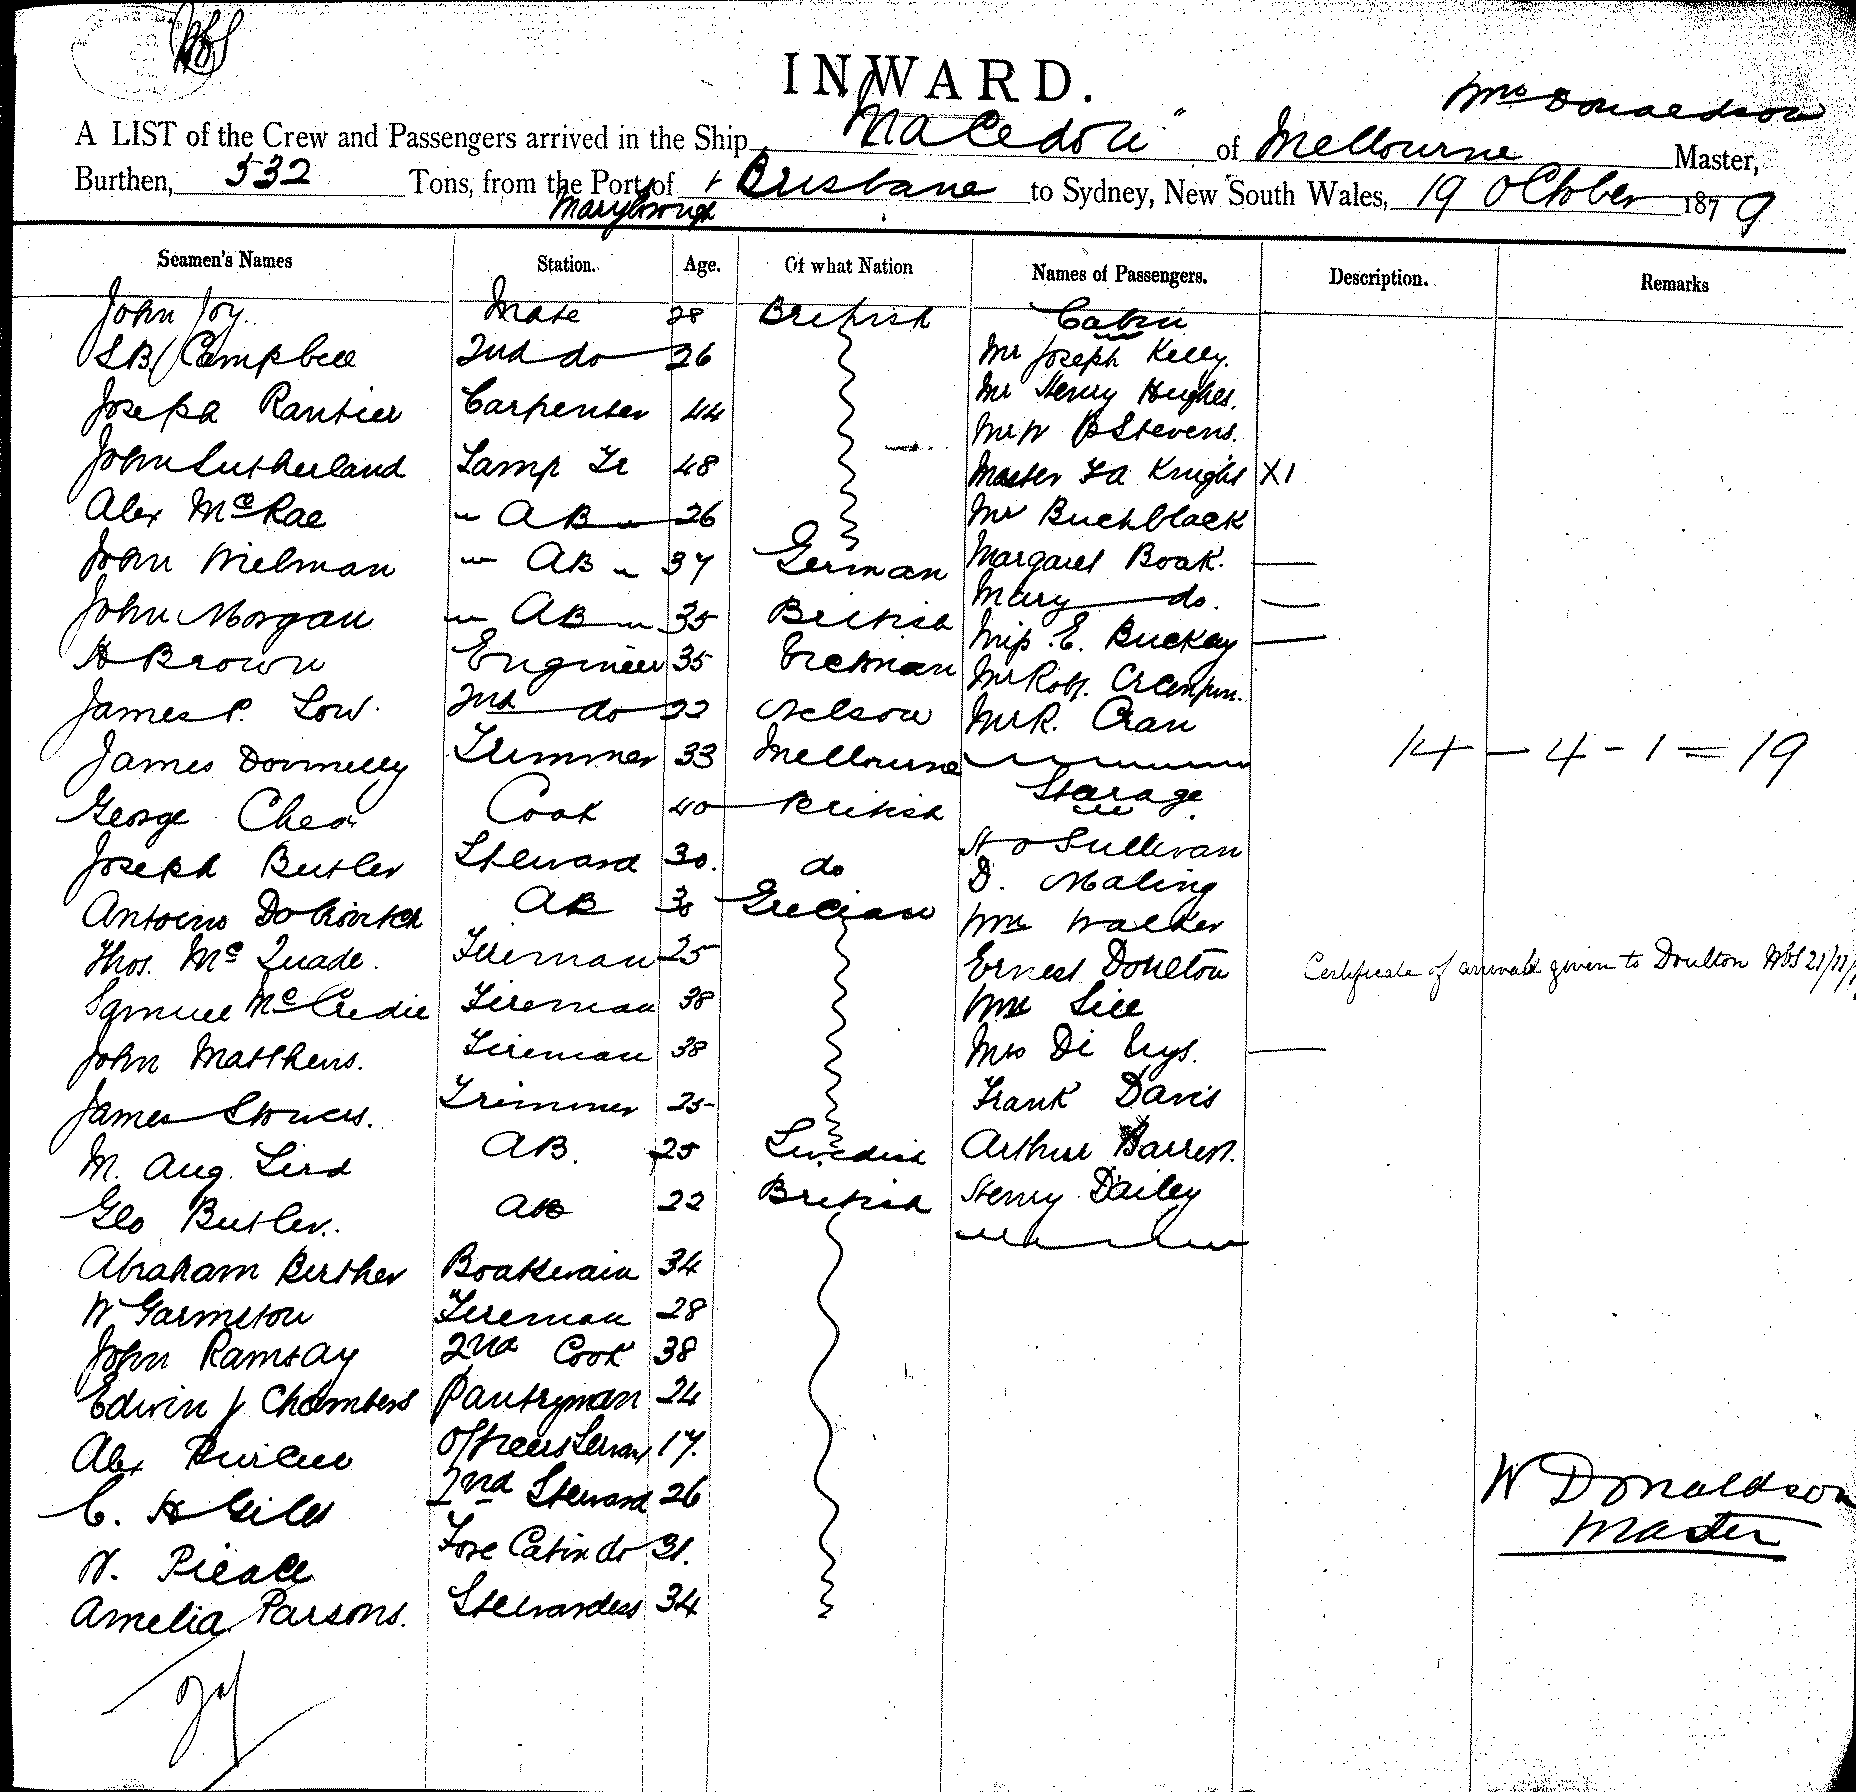 INWARD.
Wm Donaldson
A LIST of the Crew and Passengers arrived in the Ship "Macedon" of Melbourne Master,
Burthen, 532 Tons, from the Port of Maryborough + Brisbane to Sydney, New South Wales, 19 October 1879
Seamen's Names Station. Age. Of what Nation Names of Passengers. Description. Remarks
John Joy. Mate 28 British Cabin
Campbell 2nd do 26 Mr Joseph Kelly.
Joseph Carpenter 44 Mr Henry Hughes.
Mr W B Stevens.
John Sutherland Lamp Tr 48 Master Knight X1
Alex McRae " AB " 26 Mr Buchblack
John Wielman " AB " 37 German Margaret Boak.
Mary do.
John Morgan " AB " 35 British Miss E. Buckey
H Brown Engineer 35 Mr Robt.
James P. Low. 2nd do 22 Nelson Mr R. Cran
James Donnelly Trimmer 33 Melbourne 14 - 4 - 1 = 19
George Cook 40 British Starage.
Joseph Butler Steward 30. do H O Sullivan
D. Maling
AB 30 Grecian Wm Walker
Thos. McQuade. Fireman 25 Ernest Doulton Certificate of arrival given to Doulton
Samuel McCredie Fireman 38 Wm
John Matthews. Fireman 38 Mrs De
James Stowers. Trimmer 25 Frank Davis
M. Aug. AB. 25 Swedish Arthur
Geo Butler. AB 22 British Henry Dailey
Abraham Berther Boatswain 34
W Garmston Fireman 28
John Ramsay 2nd Cook 38
Edwin J Chambers Pantryman 24
Alex Officers Servant 17.
C. H Giles 2nd Steward 26
Fore Cabin do 31.
Amelia Parsons. Stewardess 34
W Donaldson
Master